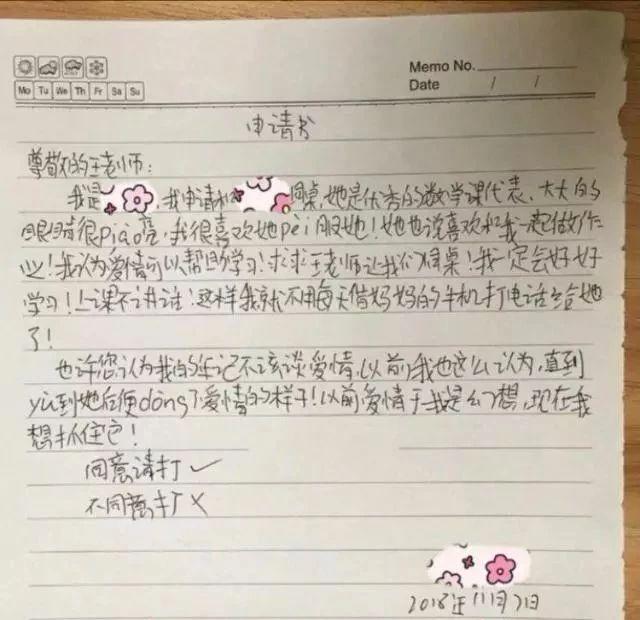 Memo No.
Mo Tu We Th Fr Sa Su
Date / /
申请书
尊敬的王老师：
我是，我申请和同桌，她是优秀的数学课代表，大大的
眼睛很piào亮，我很喜欢她pèi服她！她也说喜欢和我一起做作
业！我认为爱情可以帮助学习！求求王老师让我们同桌！我一定会好好
学习！上课不讲话！这样我就不用每天借妈妈的手机打电话给她
了！
也许您认为我的年记不该谈爱情，以前我也这么认为，直到
yù到她后便dǒng了爱情的样子！以前爱情于我是幻想，现在我
想抓住它！
同意请打✓
不同意打×
2018年11月7日